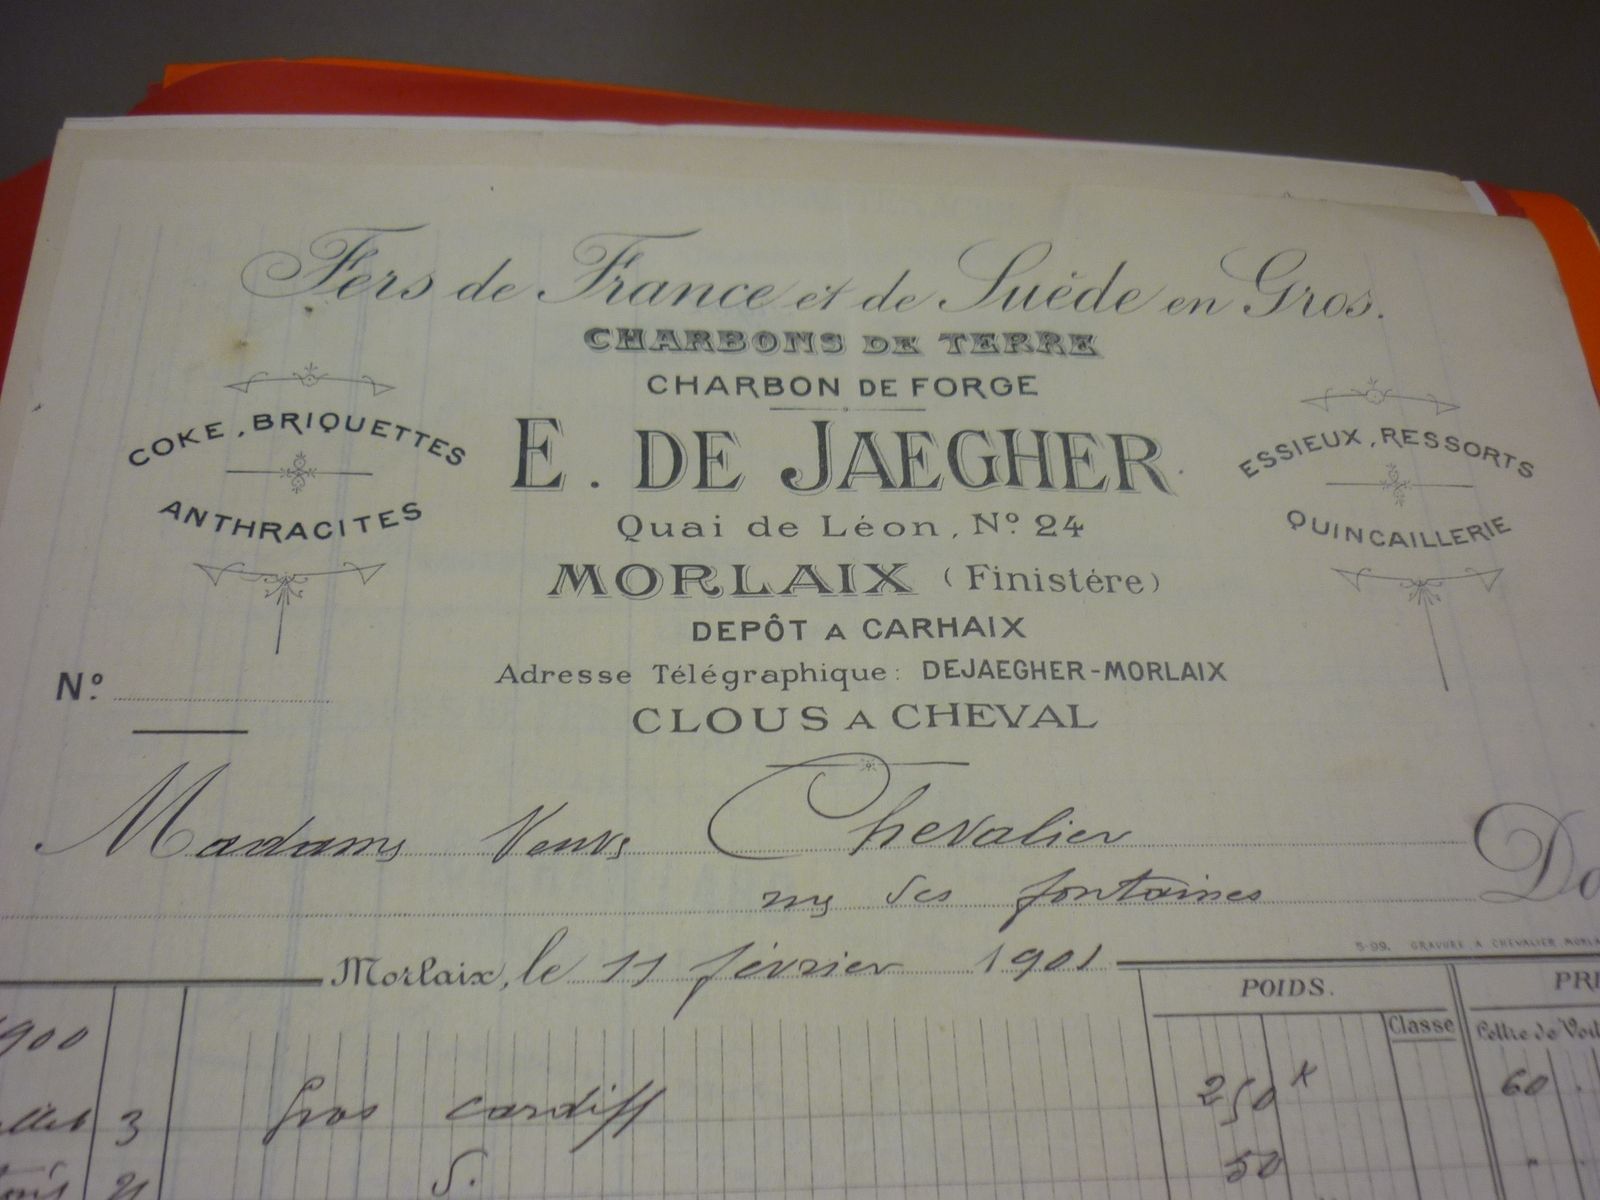 Fers de France et de Suède en Gros.
CHARBONS DE TERRE
CHARBON DE FORGE
COKE, BRIQUETTES
ANTHRACITES
E. DE JAEGHER
ESSIEUX, RESSORTS
QUINCAILLERIE
Quai de Léon, Nº 24
MORLAIX (Finistére)
DEPÔT A CARHAIX
Adresse Télégraphique: DEJAEGHER-MORLAIX
Nº
CLOUS A CHEVAL
Madame Veuve Chevalier Do
rue des fontaines
5-99. GRAVURE A CHEVALIER MORLA
Morlaix, le 11 février 1901
POIDS. PRI
Classe Lettre de Voit
1900
llet 3 Gros cardiff 250 K 60
21 50 "